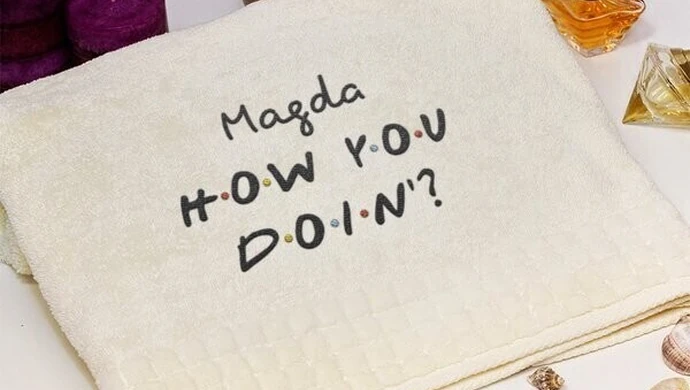 Magda
H•O•W Y•O•U
D•O•I•N'?